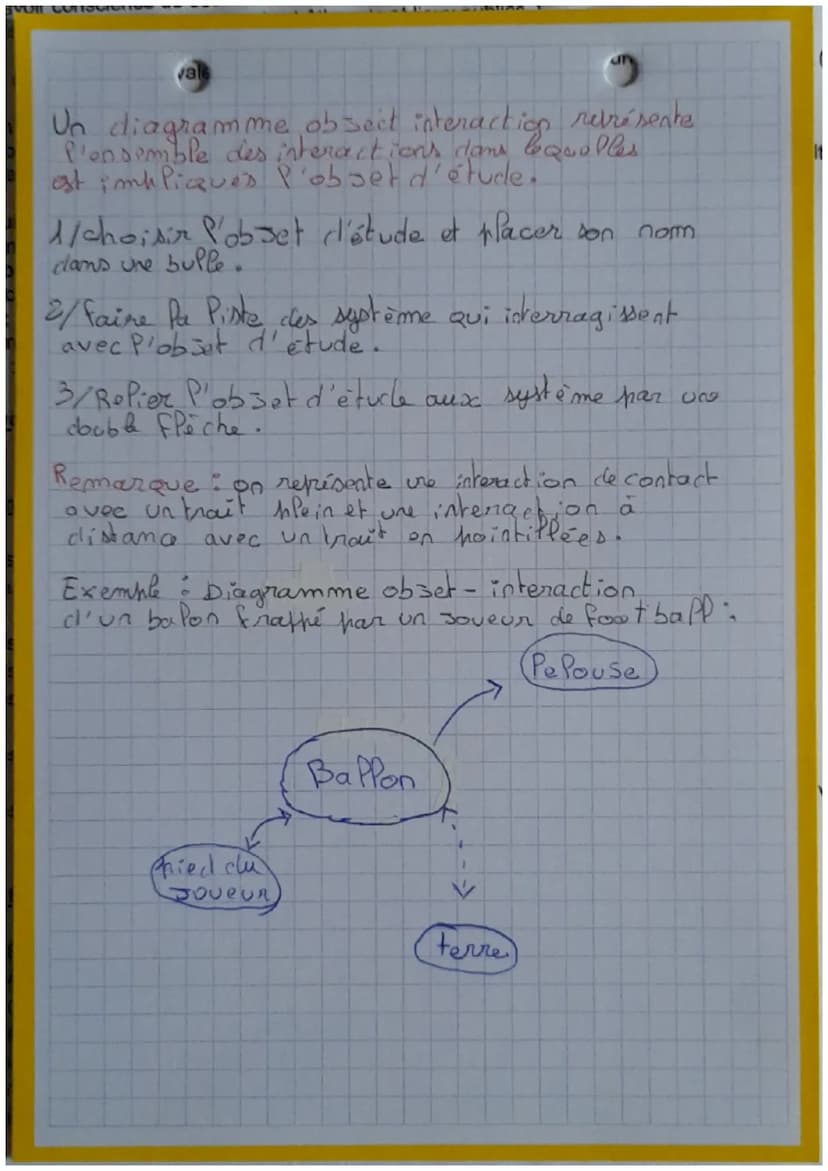 vale
un
Un diagramme object interaction représente
l'ensemble des interactions dans lequolles
est impliqués l'objet d'étude.
1/choisir l'objet d'étude et placer son nom
dans une bulle.
2/faire la liste des système qui interragissent
avec l'objet d'étude.
3/Relier l'objet d'étude aux système par une
double flèche.
Remarque : on représente une interaction de contact
avec un trait plein et une interaction à
distance avec un trait en pointillées.
Exemple : Diagramme objet - interaction
d'un balon frappé par un joueur de football :
Pelouse
Ballon
pied du
joueur
terre